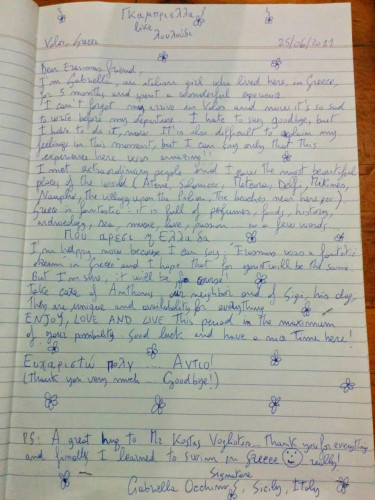 Γκαμπριελλα
like
λουλούδι
Volos, Greece 25/06/2021
Dear Erasmus friend,
I'm Gabriella, an italian girl who lived here, in Greece,
for 5 months and spent a wonderful experience.
I can't forget my arrive in Volos and now it's so sad
to write before my departure. I hate to say goodbye, but
I have to do it, now. It is also difficult to explain my
feelings in this moment, but I can say only that this
experience here was amazing!!
I met extraordinary people and I saw the most beautiful
places of the world (Atene, Meteora, Delfi,
the village upon the Pilion, the beaches near here ecc.)
Greece is fantastic: it is full of perfumes, foods, history,
archeology, sea, music, love, passion ... in a few words
Μου αρέσει η Ελλάδα
I'm happy now because I can say "Erasmus was a fantastic
dream in Greece" and I hope that for you it will be the same.
But I'm sure, it will be
Take care of Anthony, our neighbor and of Sigi, his dog,
They are unique and availability for everything
ENJOY, LOVE AND LIVE this period in the maximum
of your possibility. Good luck and have a nice time here!
Ευχαριστώ πολυ .... Αντίο!
(Thank you very much Goodbye!)
PS: A great hug to Mr Kostas ... Thank you for everything
and finally I learned to swim in Greece really!
Signature
Gabriella Sicily, Italy